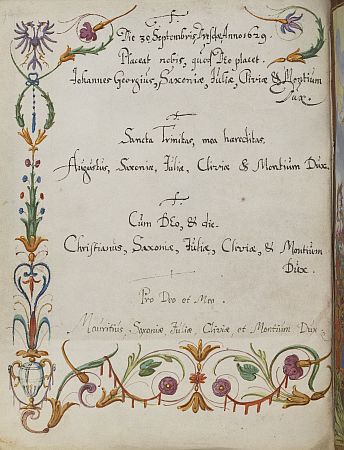 Die 30 Septembris Dresdae Anno 1629.
Placeat nobis, quod Deo placet.
Johannes Georgius, Saxoniæ, Juliæ, Cliviæ & Montium
Dux.
Sancta Trinitas, mea hæreditas.
Augustus, Saxoniæ, Juliæ, Cliviæ & Montium Dux.
Cum DEo, & die.
Christianus, Saxoniæ, Juliæ, Cliviæ, & Montium
Dux.
Pro Deo et Meo.
Mauritius, Saxoniæ, Juliæ, Cliviæ et Montium Dux.